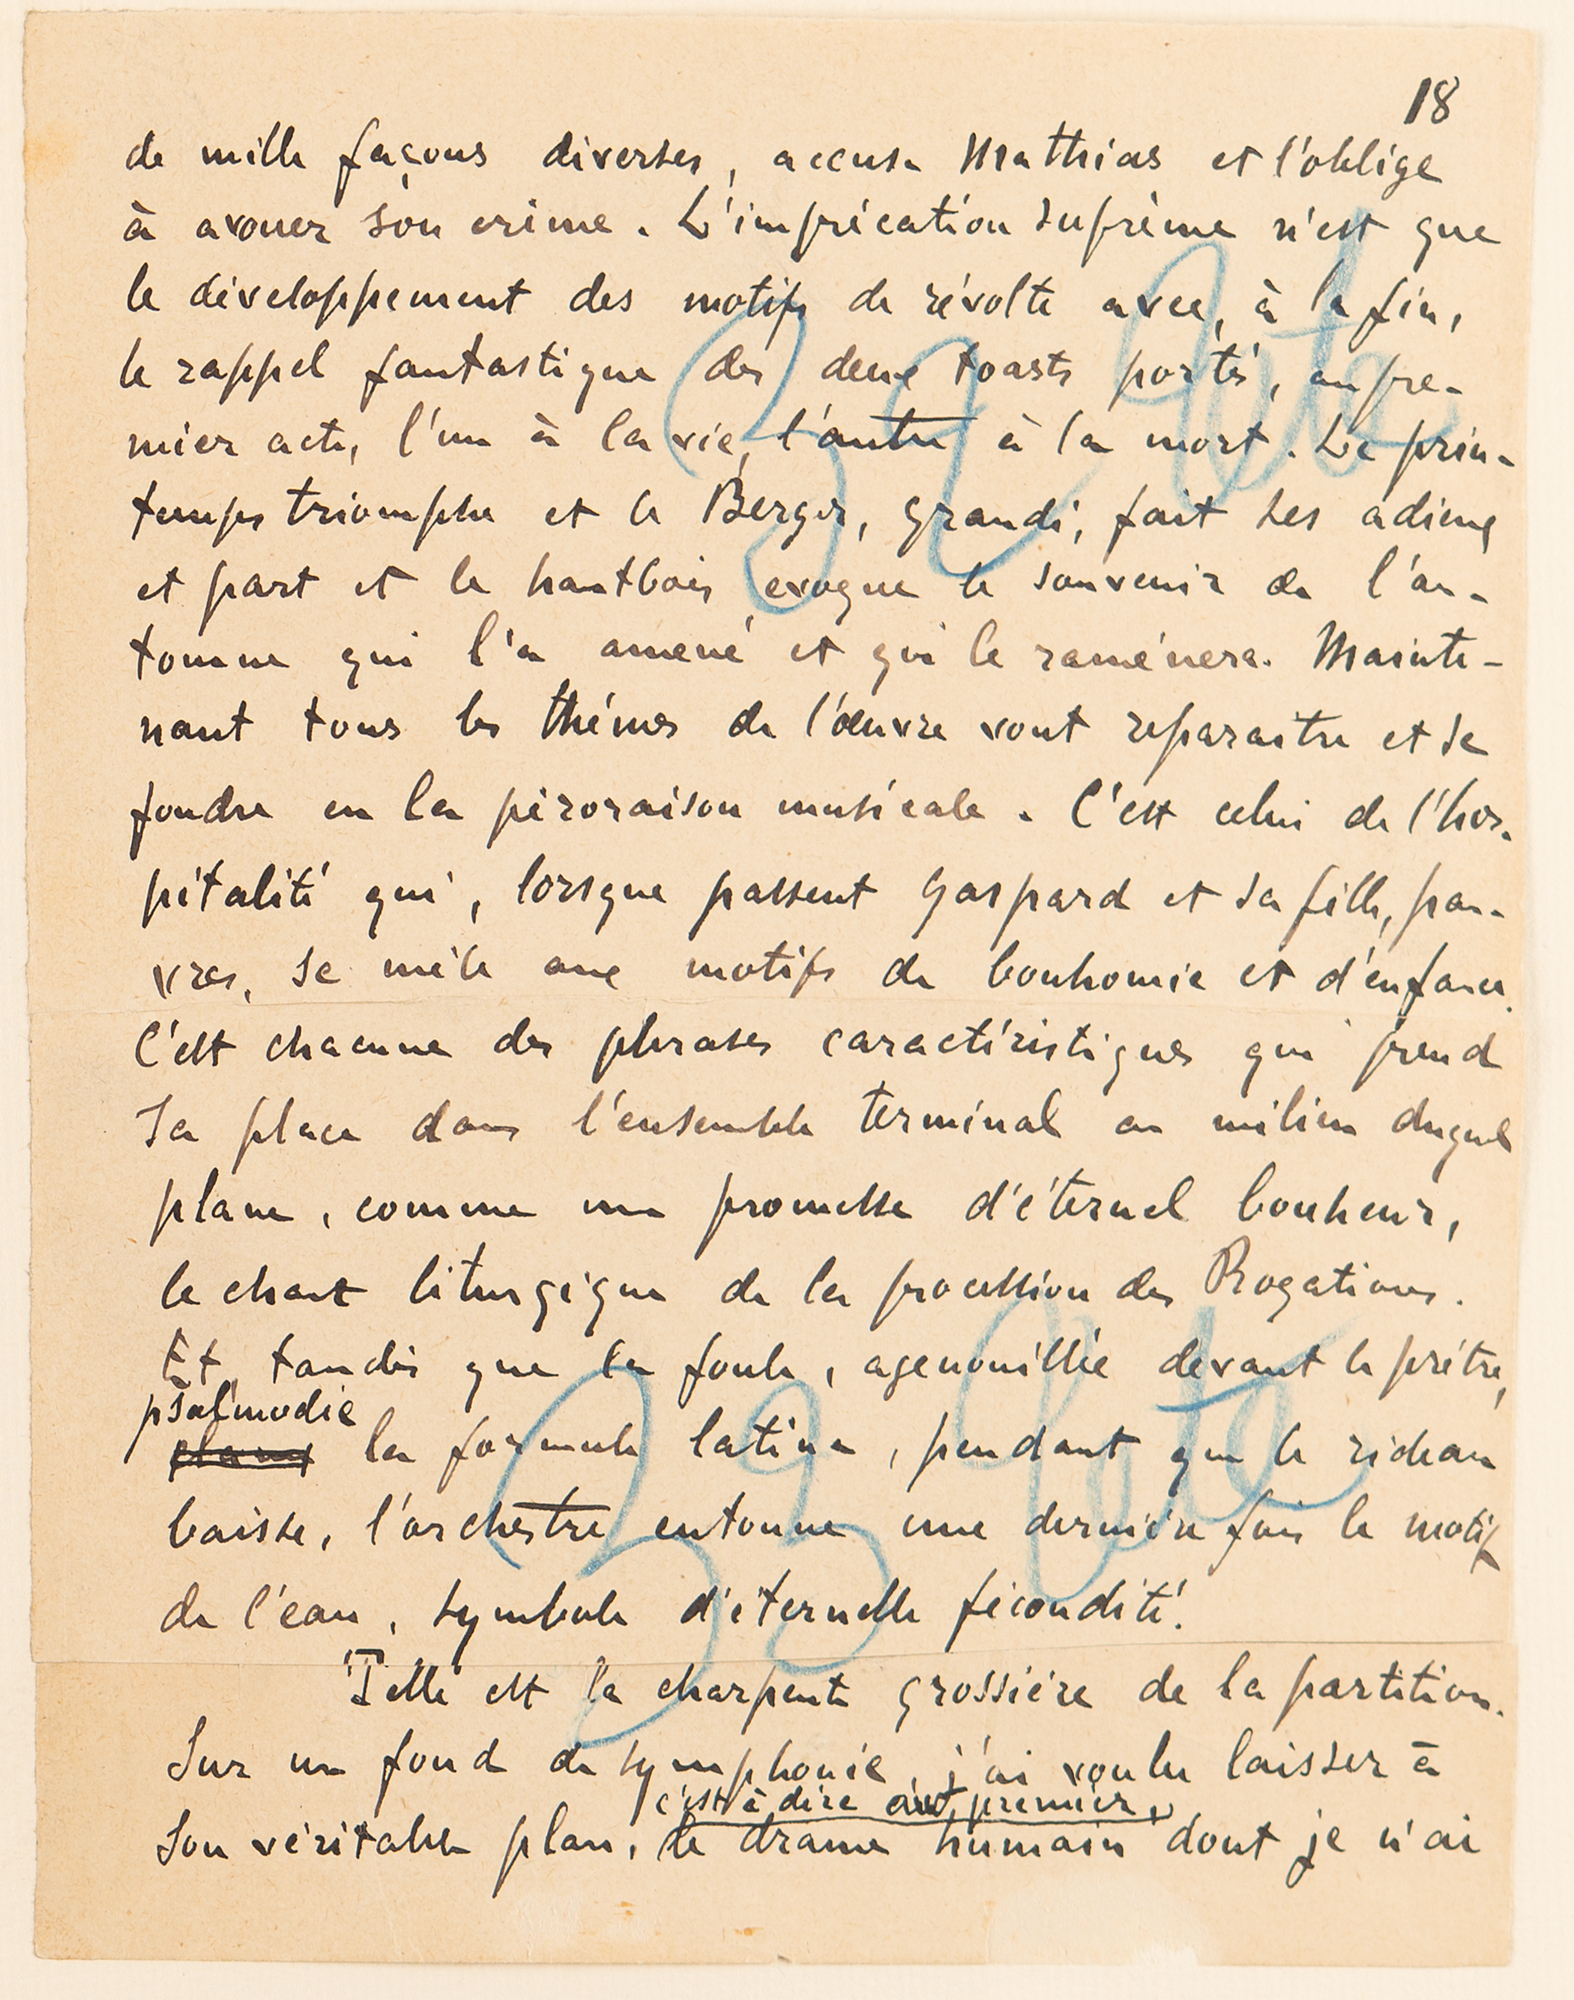 18
de mille façons diverses, accuse Mathias et l'oblige
à avouer son crime. L'imprécation suprême n'est que
le développement des motifs de révolte avec, à la fin,
le rappel fantastique des deux toasts portés, au pre-
mier acte, l'un à la vie, l'autre à la mort. Le prin-
temps triomphe et le Berger, grandi, fait ses adieux
et part et le hautbois évoque le souvenir de l'au-
tomne qui l'a amené et qui le ramènera. Mainte-
nant tous les thèmes de l'œuvre vont reparaître et se
fondre en la péroraison musicale. C'est celui de l'hos-
pitalité qui, lorsque passent Gaspard et sa fille, pau-
vres, se mêle aux motifs de bonhomie et d'enfance.
C'est chacune des phrases caractéristiques qui prend
sa place dans l'ensemble terminal au milieu duquel
plane, comme une promesse d'éternel bonheur,
le chant liturgique de la procession des Rogations.
Et, tandis que la foule, agenouillée devant le prêtre,
psalmodie
la formule latine, pendant que le rideau
baisse, l'orchestre entonne une dernière fois le motif
de l'eau, symbole d'éternelle fécondité.
Telle est la charpente grossière de la partition.
Sur un fond de symphonie, j'ai voulu laisser à
c'est à dire au premier,
son véritable plan, le drame humain dont je n'ai